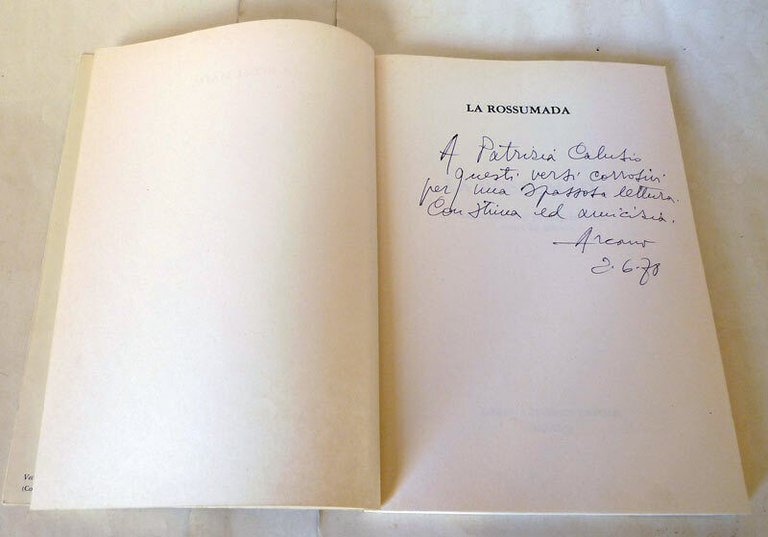 LA ROSSUMADA
A Patrizia Calusio
questi versi corrosivi
per una spassosa lettura.
Con stima ed amicizia.
Arcano
2.6.78